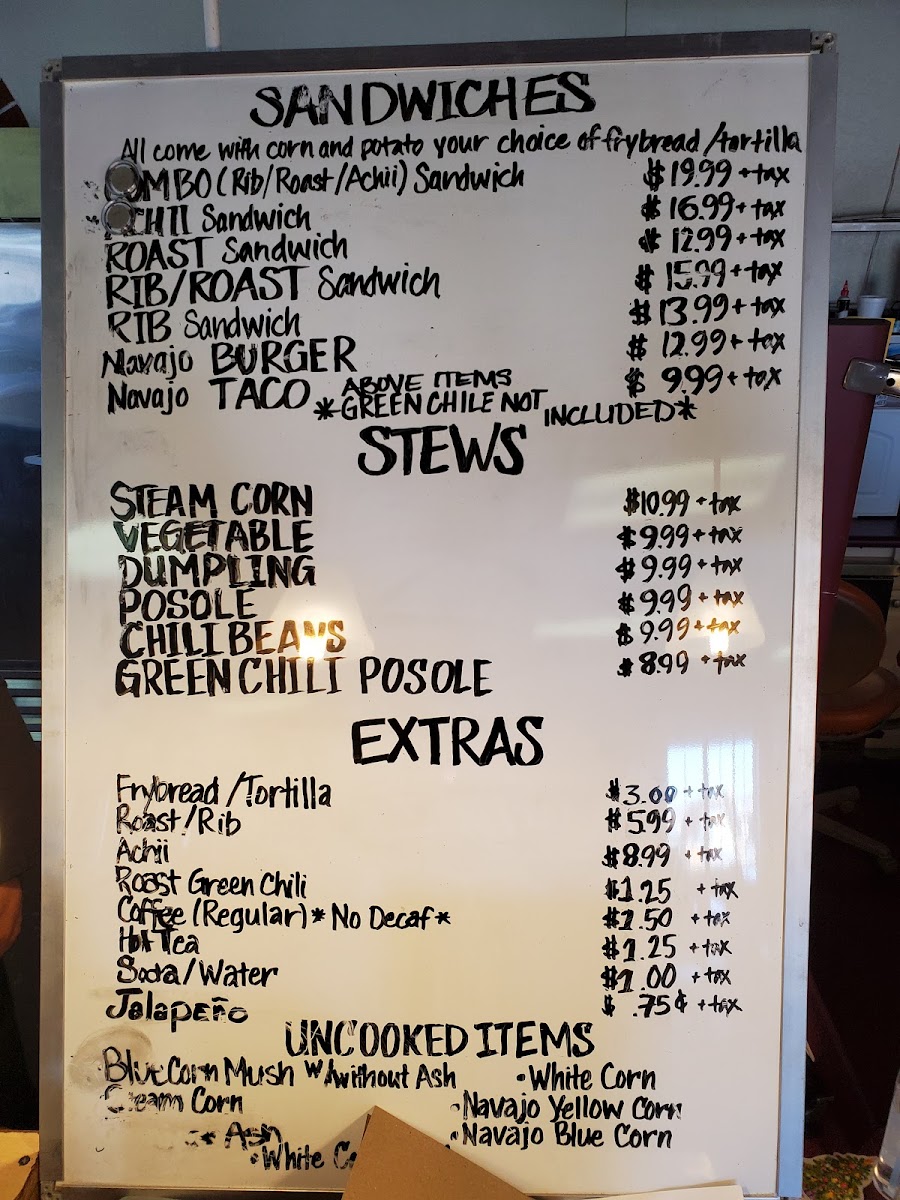 SANDWICHES
All come with corn and potato your choice of frybread/tortilla
OMBO (Rib/Roast/Achii) Sandwich $19.99 + tax
CHII Sandwich $16.99 + tax
ROAST Sandwich $12.99 + tax
RIB/ROAST Sandwich $15.99 + tax
RIB Sandwich $13.99 + tax
Navajo BURGER $12.99 + tax
Navajo TACO $9.99 + tax
ABOVE ITEMS
*GREEN CHILE NOT INCLUDED*
STEWS
STEAM CORN $10.99 + tax
VEGETABLE $9.99 + tax
DUMPLING $9.99 + tax
POSOLE $9.99 + tax
CHILI BEANS $9.99 + tax
GREEN CHILI POSOLE $8.99 + tax
EXTRAS
Frybread/Tortilla $3.00 + tax
Roast/Rib $5.99 + tax
Achii $8.99 + tax
Roast Green Chili $1.25 + tax
Coffee (Regular) *No Decaf* $1.50 + tax
Hot Tea $1.25 + tax
Soda/Water $1.00 + tax
Jalapeño $ .75¢ + tax
UNCOOKED ITEMS
Blue Corn Mush w/without Ash •White Corn
Steam Corn •Navajo Yellow Corn
Ash •Navajo Blue Corn
•White C